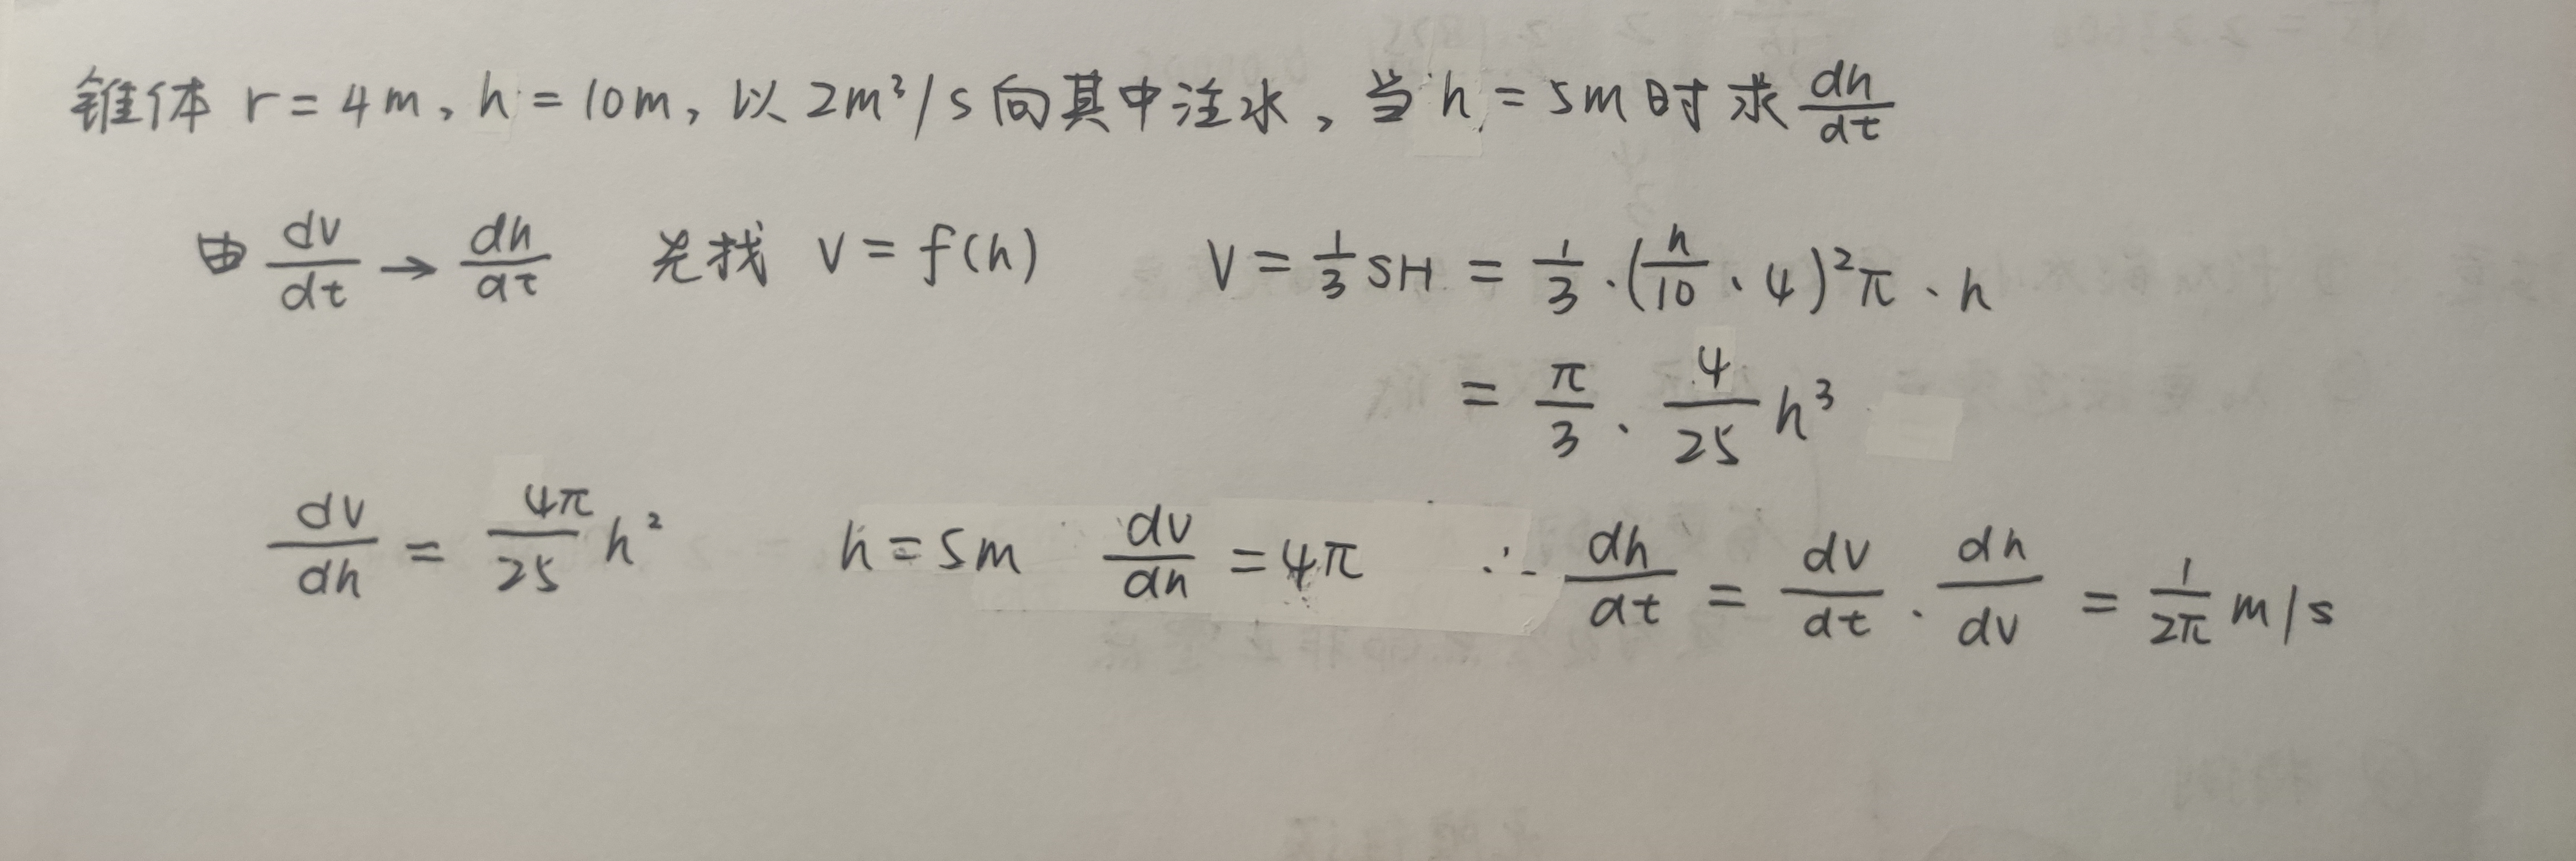 锥体 r = 4m, h = 10m, 以 2m³/s 向其中注水, 当 h = 5m 时 求 dh/dt
由 dv/dt → dh/dt 先找 V = f(h) V = 1/3 SH = 1/3 · (h/10 · 4)²π · h
= π/3 · 4/25 h³
dv/dh = 4π/25 h² h = 5m dv/dh = 4π ∴ dh/dt = dv/dt · dh/dv = 1/2π m/s